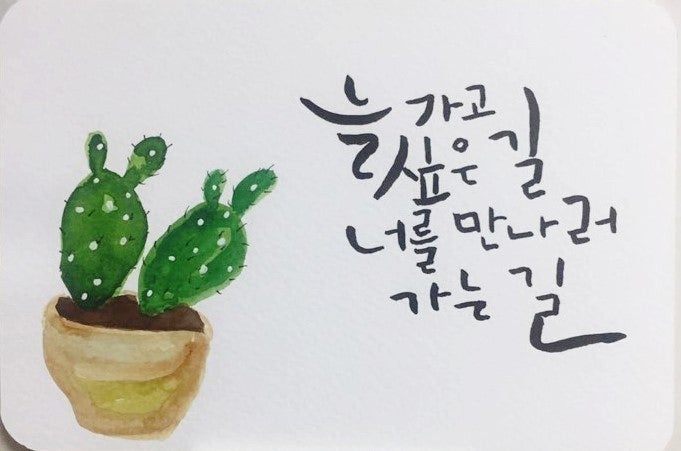 늘 가고
싶은 길
너를 만나러
가는 길